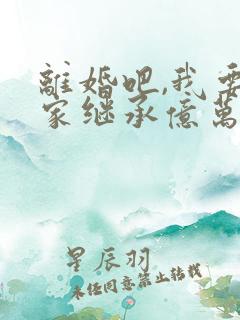 離婚吧,我要
家继承億萬
星辰羽
未经同意禁止转载